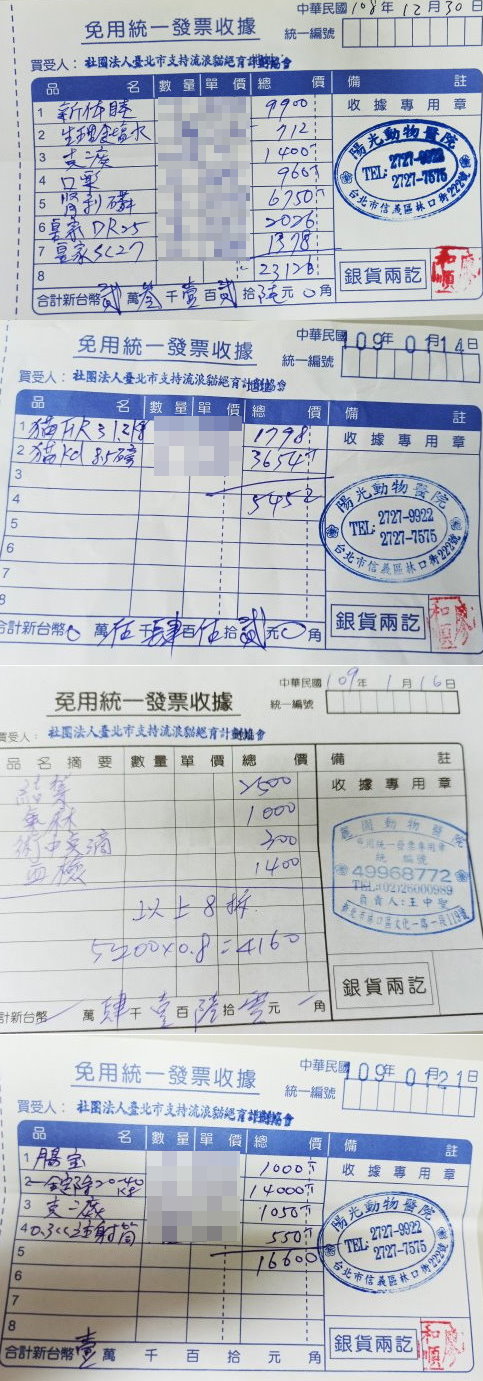 免用統一發票收據
中華民國108年12月30日
統一編號
買受人：社團法人臺北市支持流浪貓絕育計劃協會
品名 數量 單價 總價 備註
1 新体睦 9900
收據專用章
2 生理食塩水 712
3 1400
4 960
5 腎利磷 6750
6 皇家DR25 2026
7 皇家SC27 1378
8 23126
陽光動物醫院
TEL: 2727-9922
2727-7575
台北市信義區林口街222號
銀貨兩訖
合計新台幣貳萬叁千壹百貳拾陸元0角
免用統一發票收據
中華民國109年01月14日
統一編號
買受人：社團法人臺北市支持流浪貓絕育計劃協會
品名 數量 單價 總價 備註
1 1798
收據專用章
2 貓kd 8.5磅 3654
3
4 5452
5
6
7
8
陽光動物醫院
TEL: 2727-9922
2727-7575
台北市信義區林口街222號
銀貨兩訖
合計新台幣0萬伍千肆百伍拾貳元0角
免用統一發票收據
中華民國109年1月16日
統一編號
買受人：社團法人臺北市支持流浪貓絕育計劃協會
品名摘要 數量 單價 總價 備註
2500
收據專用章
氣麻 1000
術中点滴 300
血檢 1400
以上8折
5200x0.8=4160
動物醫院
統一編號
49968772
TEL:(02)26000989
負責人:王中聖
銀貨兩訖
合計新台幣 萬肆千壹百陸拾零元 角
免用統一發票收據
中華民國109年01月21日
統一編號
買受人：社團法人臺北市支持流浪貓絕育計劃協會
品名 數量 單價 總價 備註
1 腸宝 1000
收據專用章
2 一錠除20-40kg 14000
3 1050
4 0.3cc注射筒 550
5 16600
6
7
8
陽光動物醫院
TEL: 2727-9922
2727-7575
台北市信義區林口街222號
銀貨兩訖
合計新台幣壹萬 千 百 拾 元 角